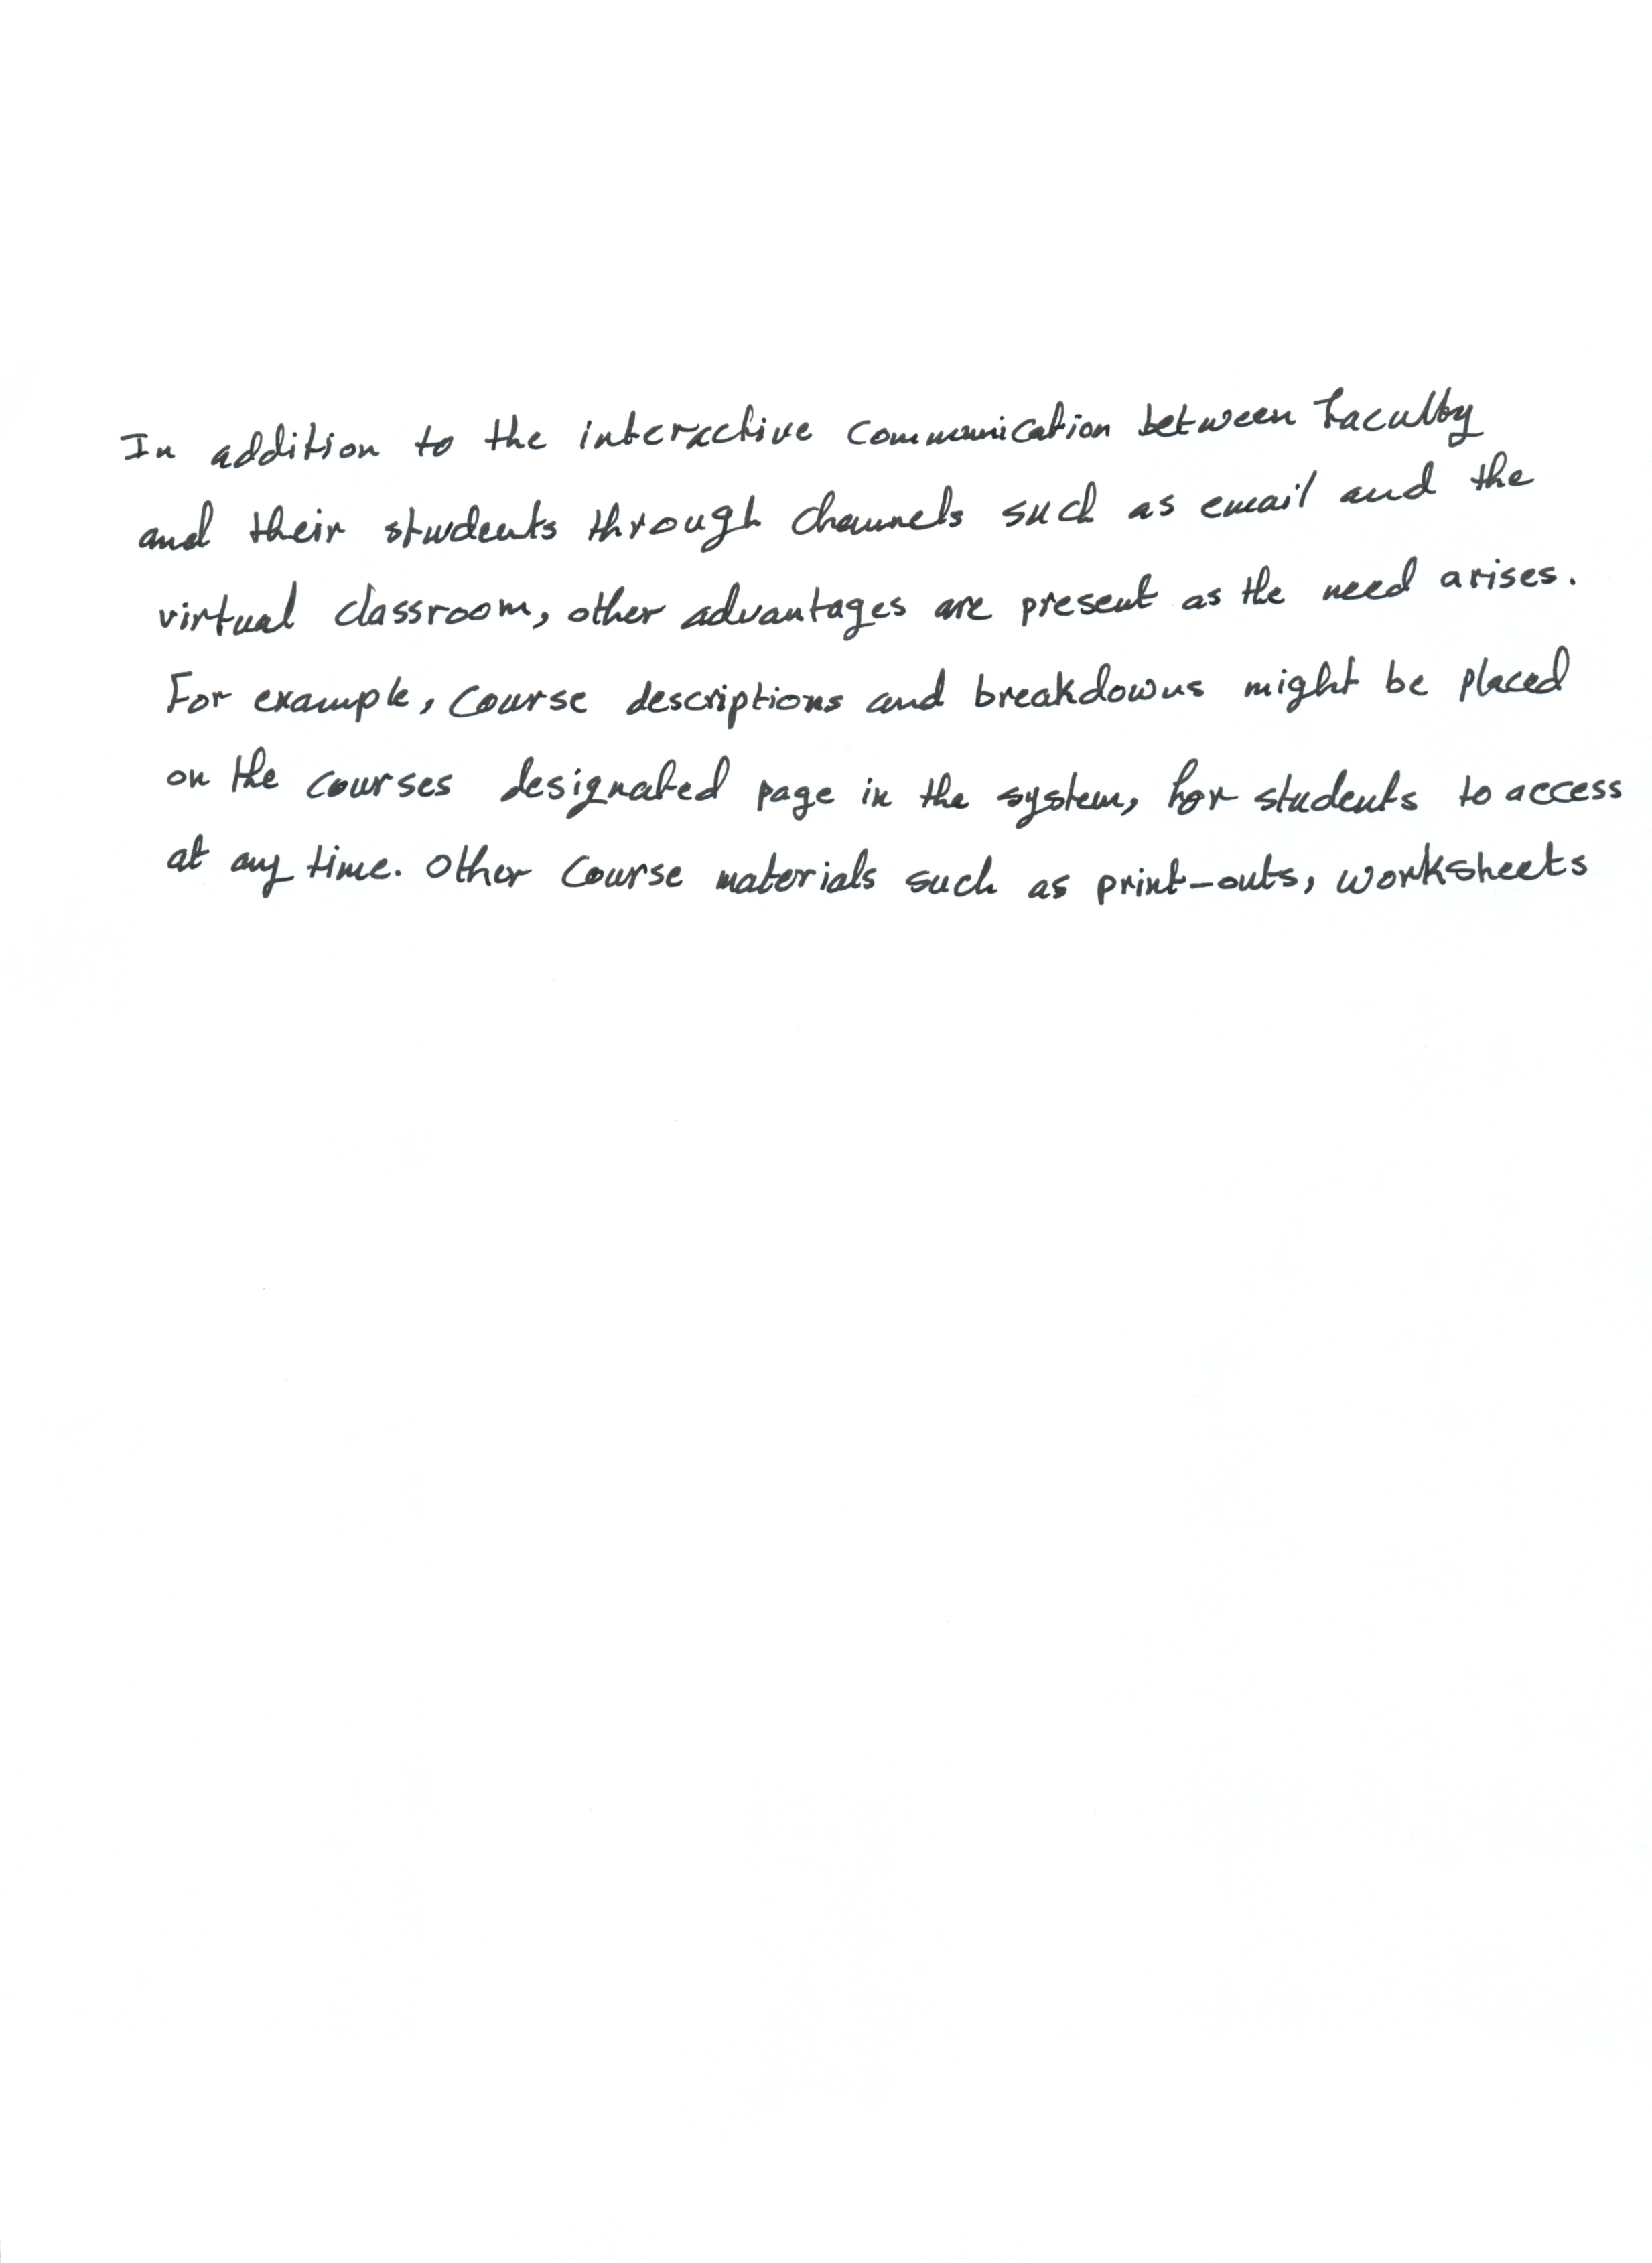 In addition to the interactive communication between faculty
and their students through channels such as email and the
virtual classroom, other advantages are present as the need arises.
For example, course descriptions and breakdowns might be placed
on the courses designated page in the system, for students to access
at any time. Other course materials such as print-outs, worksheets